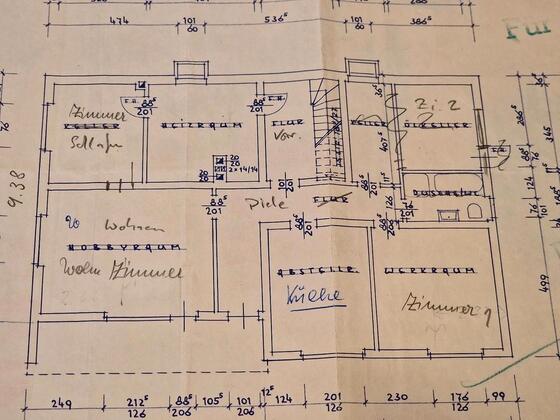 Für
474
101
60
536⁵
101
60
386⁵
Zimmer
KELLER
Schlafen
F.H.
88⁵
201
HEIZRAUM
88⁵
201
F.H.
FLUR
Vor.
KELLER
36⁵
407⁵
Zi. 2
ÖLKELLER
286⁵
365
20
20
20
2×14/14
88⁵
201
101
201
FLUR
Diele
88⁵
201
88⁵
201
126
101
201
DUSCHRAUM
124
76
101
9.38
20
Wohnen
HOBBYRAUM
Wohn Zimmer
ABSTELLR.
Küche
WERKRAUM
Zimmer 1
499
249
212⁵
126
88⁵
206
105⁵
101
206
12⁵
124
201
126
230
176
126
99